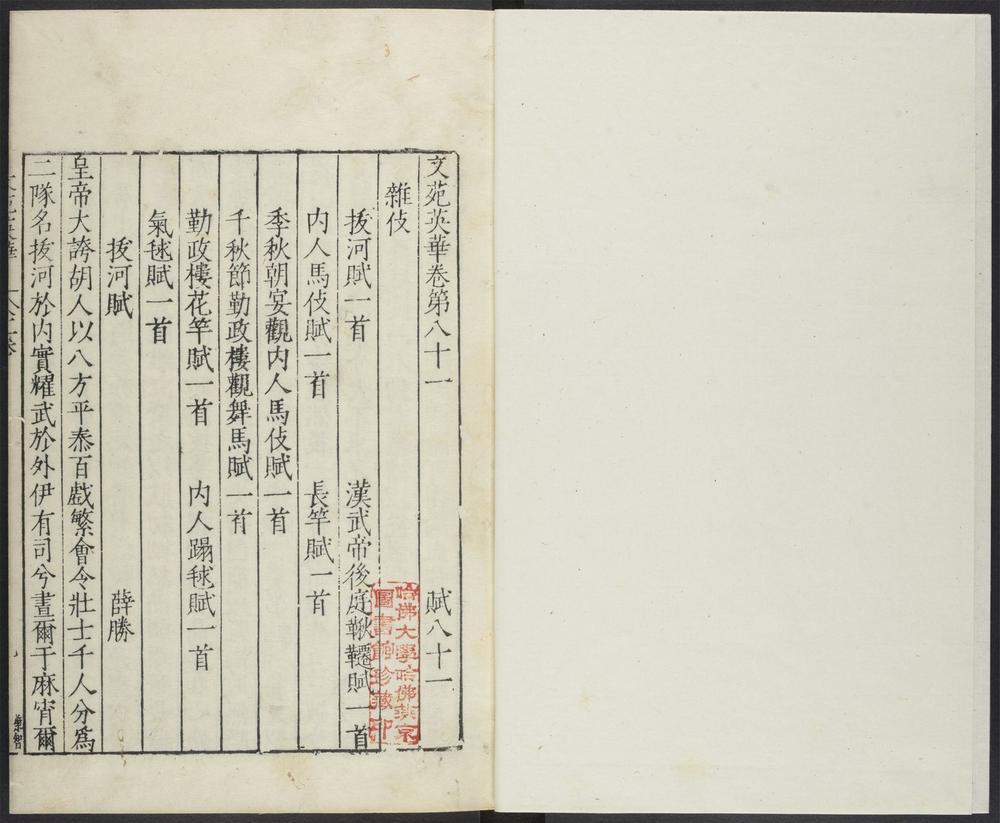 文苑英華卷第八十一 賦八十一
雜伎
拔河賦一首 漢武帝後庭鞦韆賦一首
内人馬伎賦一首 長竿賦一首
季秋朝宴觀内人馬伎賦一首
千秋節勤政樓觀舞馬賦一首
勤政樓花竿賦一首 内人蹋毬賦一首
氣毬賦一首
拔河賦 薛勝
皇帝大誇胡人以八方平泰百戲繁會令壯士千人分爲
二隊名拔河於内實耀武於外伊有司兮晝爾于麻宵爾
哈佛大學哈佛燕京
圖書館珍藏印